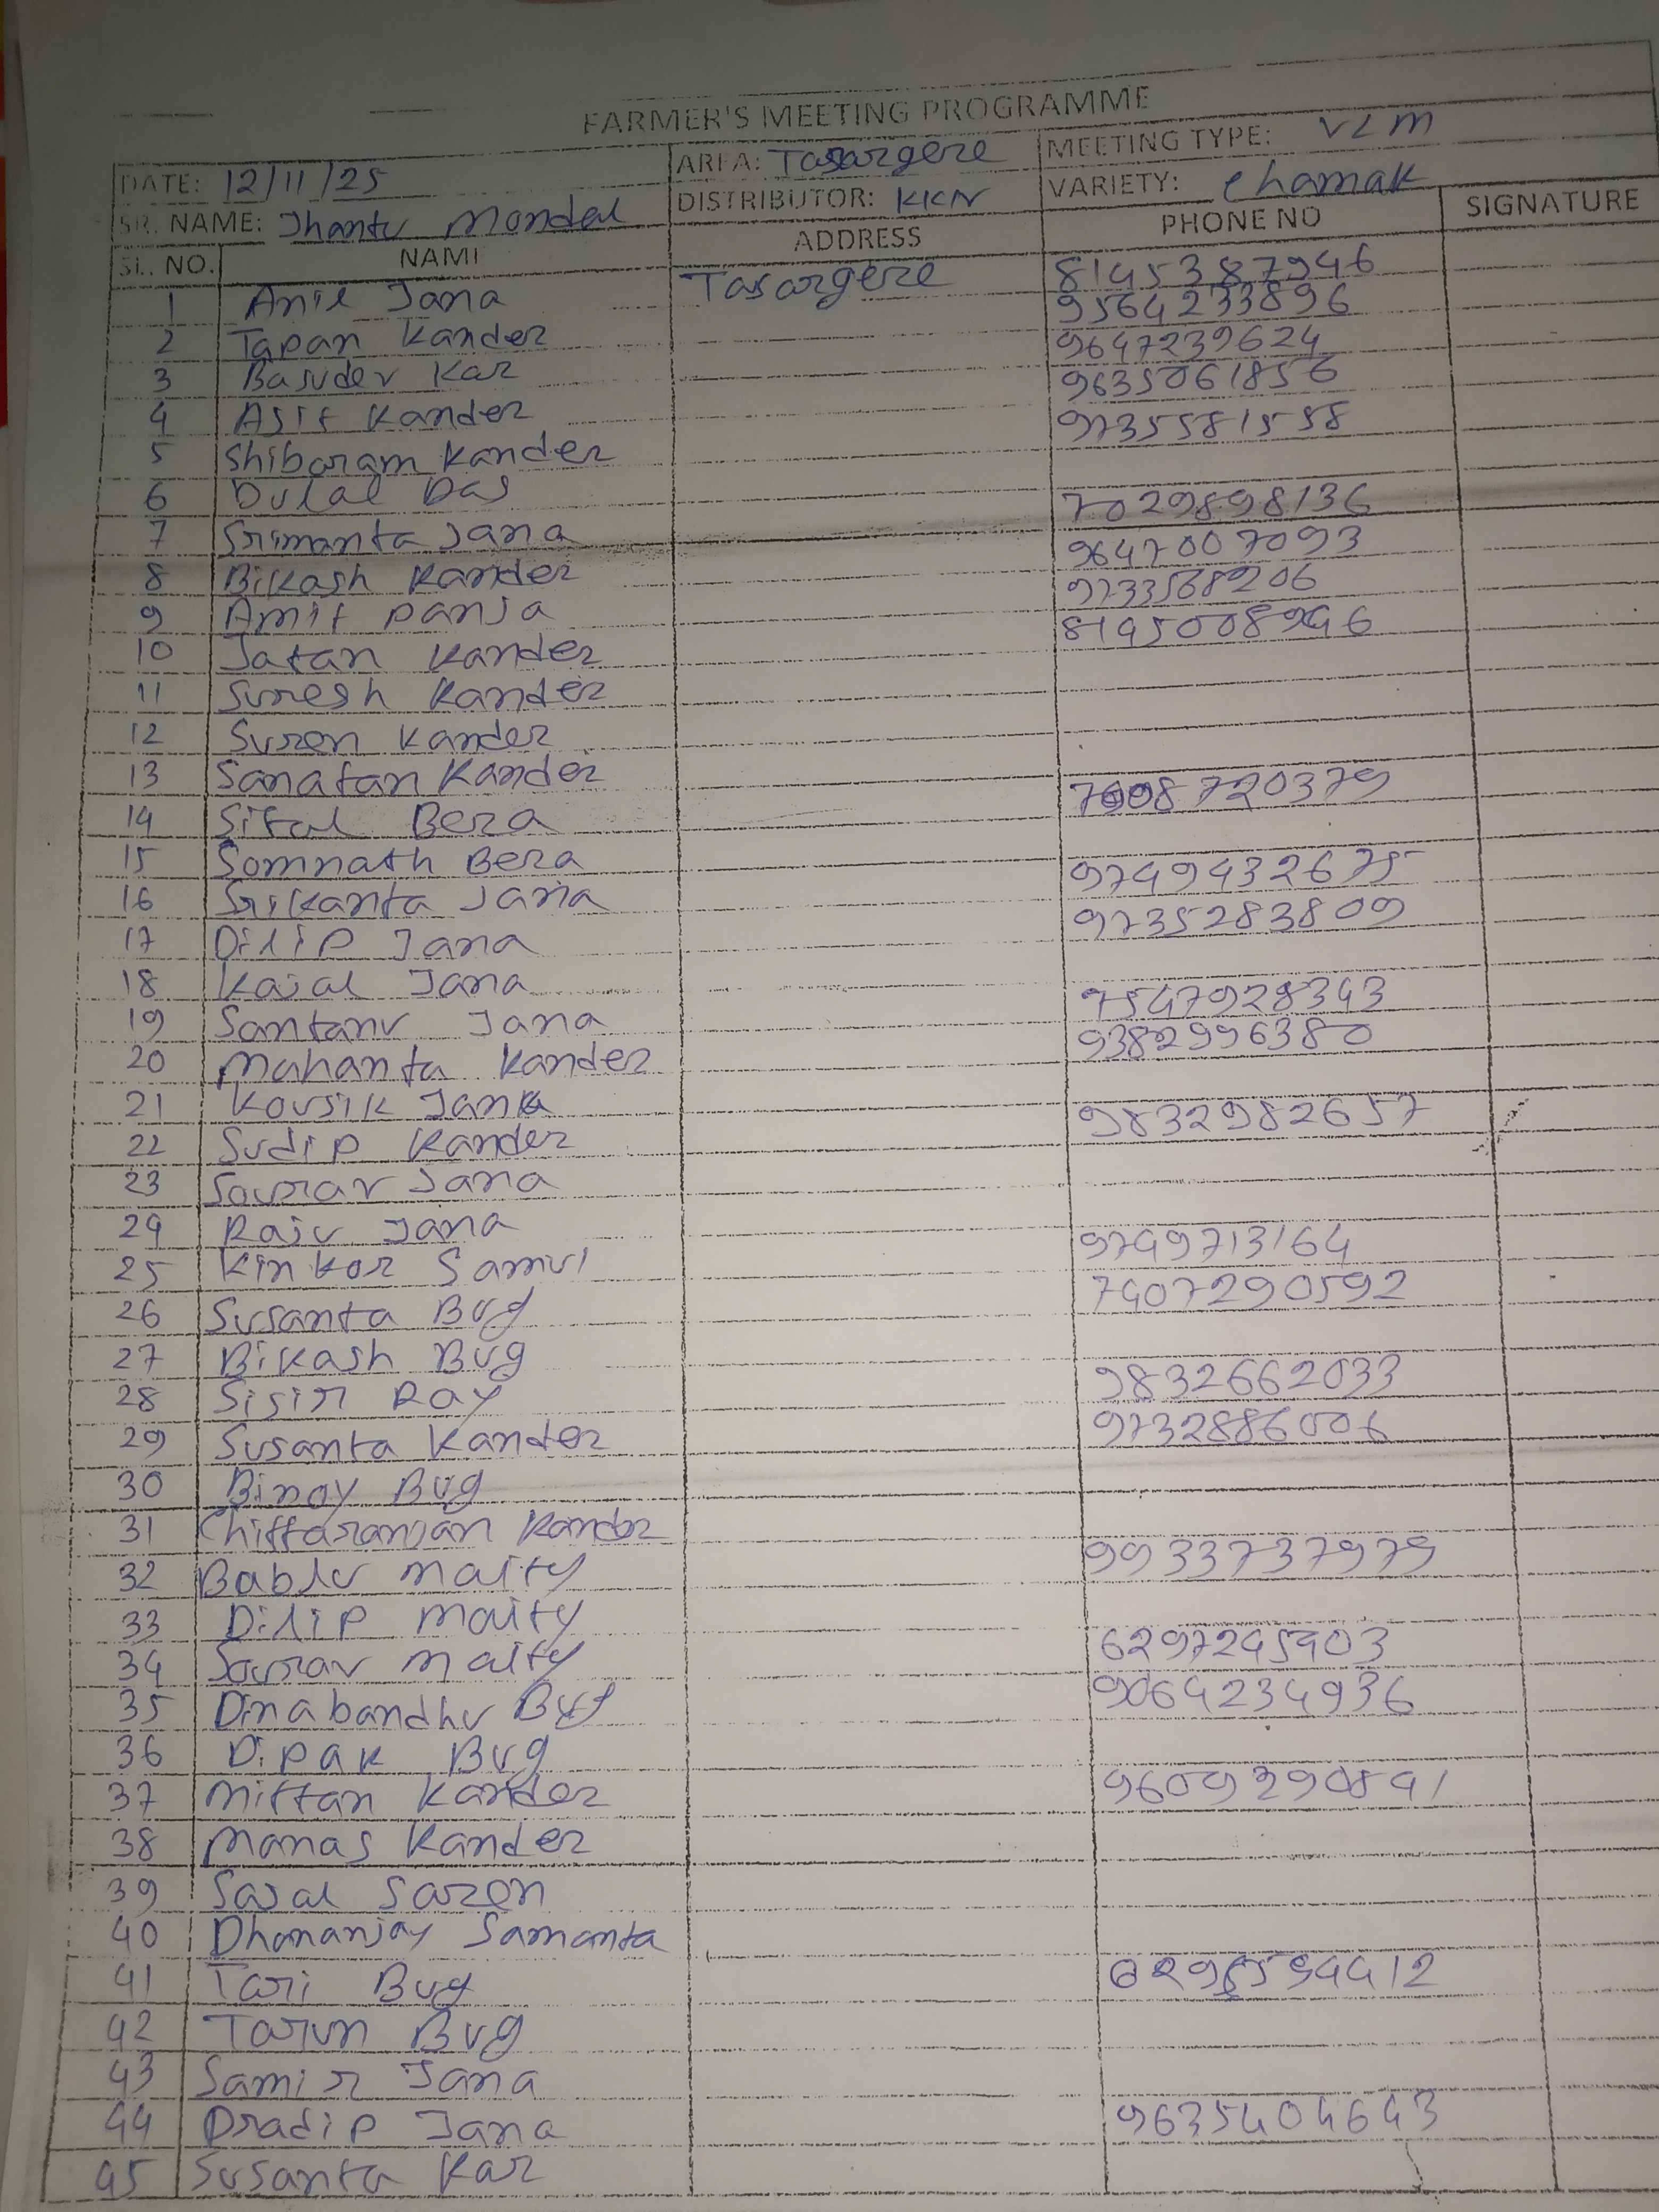 FARMER'S MEETING PROGRAMME
DATE: 12/11/25 AREA: Tasargere MEETING TYPE: VLM
SR. NAME: Jhantu Mondal DISTRIBUTOR: KKN VARIETY: Chamak
SL. NO. NAME ADDRESS PHONE NO SIGNATURE
1 Anil Jana Tasargere 8145387946
2 Tapan Kander 9564233896
3 Basudev Kar 9647239624
4 Asit Kander 9635061856
5 Shibaram Kander 9735581558
6 Dulal Das
7 Srimanta Jana 7029898136
8 Bikash Kander 9647007093
9 Amit Panja 9733568206
10 Jatan Kander 8145008946
11 Suresh Kander
12 Suren Kander
13 Sanatan Kander
14 Sital Bera 7908720379
15 Somnath Bera
16 Srikanta Jana 9749432675
17 Dilip Jana 9735283809
18 Kajal Jana
19 Santanu Jana 7547928343
20 Mahanta Kander 9382996380
21 Kousik Jana
22 Sudip Kander 9832982657
23 Sourav Jana
24 Raju Jana
25 Kinkor Samui 9749713164
26 Susanta Bug 7407290592
27 Bikash Bug
28 Sisir Ray 9832662033
29 Susanta Kander 9732886006
30 Binoy Bug
31 Chittaranjan Kander
32 Bablu Maity 9933737979
33 Dilip Maity
34 Sourav Maity 6297245903
35 Dinabandhu Bug 9064234936
36 Dipak Bug
37 Mittan Kander 9609390841
38 Manas Kander
39 Sajal Saren
40 Dhananjay Samanta
41 Tari Bug
42 Tarun Bug
43 Samir Jana
44 Pradip Jana 9635404643
45 Susanta Kar